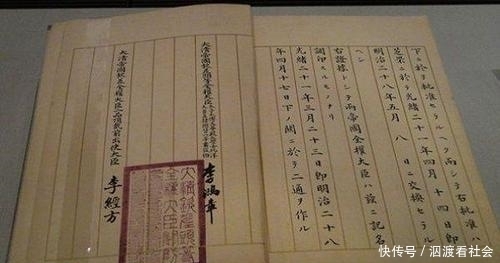 下ニ於テ批准セラルヘク而シテ右批准ハ
芝罘ニ於テ光緒二十一年四月十四日即
明治二十八年五月 八 日ニ交換セラル
ヘシ
右證據トシテ兩帝國全權大臣ハ茲ニ記名
調印スルモノナリ
光緒二十一年三月二十三日即明治二十八
年四月十七日下ノ關ニ於テ二通ヲ作ル
大清帝國欽差頭等全權大臣 李鴻章
大清帝國欽差全權大臣二品頂戴前出使大臣 李經方
快传号/泗渡看社会